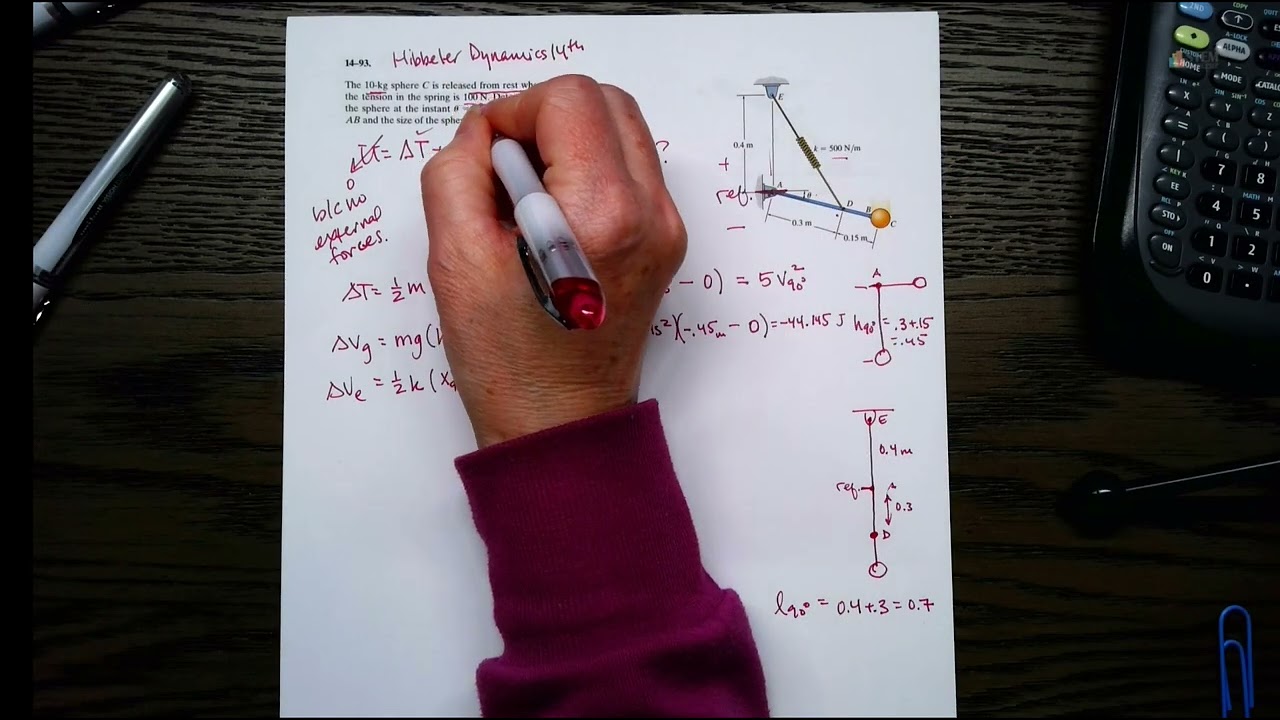 14-93. Hibbeler Dynamics 14th
The 10-kg sphere C is released from rest
the tension in the spring is 100 N.
the sphere at the instant θ
AB and the size of the
U = ΔT +
?
0
b/c no
external
forces.
ΔT = ½ m
- 0) = 5 V90°²
ΔVg = mg(
s²)(-.45m - 0) = -44.145 J
ΔVe = ½ k (x
E
0.4 m
k = 500 N/m
+
ref.
-
A
θ
D
B
C
0.3 m
0.15 m
A
h90° = .3+.15
= .45
E
0.4 m
ref.
A
0.3
D
C
l90° = 0.4+.3 = 0.7
2ND
COPY
QUIT
A-LOCK
ALPHA
CUSTOM
HOME
MODE
CATALOG
SIN⁻¹
SIN
X
Y
Z
=
(
)
EE
7
8
STO▸
4
5
1
2
ON
0
.